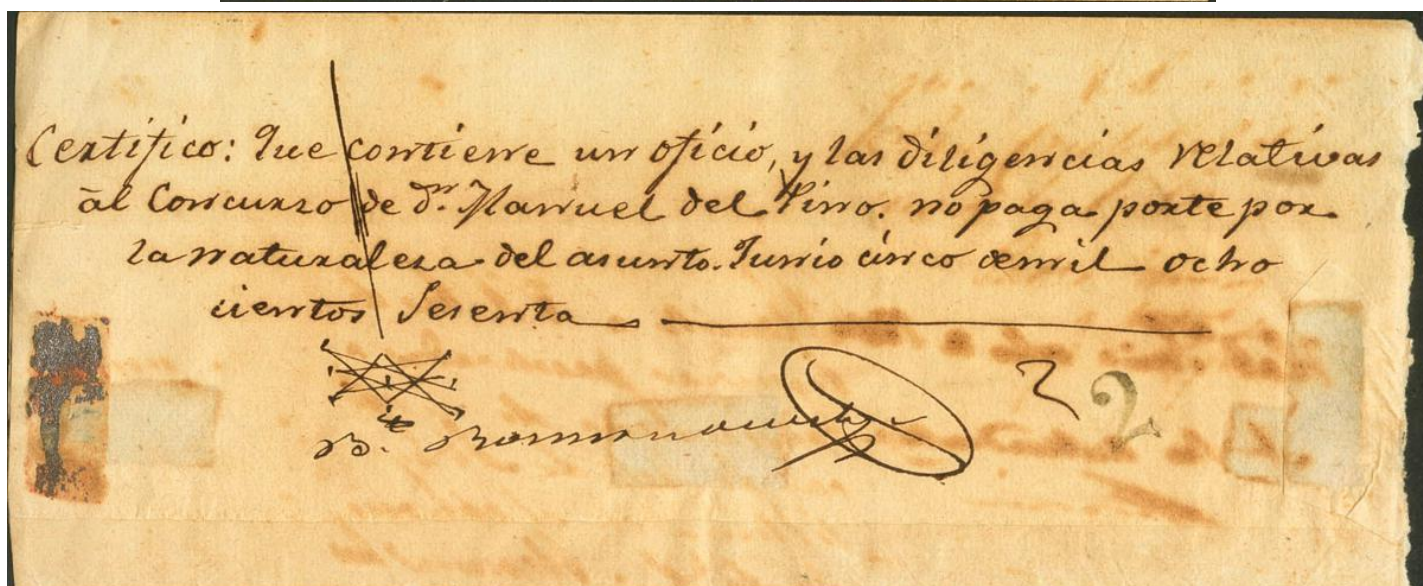 Certifico: Que contiene un oficio, y las diligencias relativas
āl Concurso de Dn. Manuel del Pino. no paga porte por
la naturaleza del asunto. Junio cinco de mil ocho
cientos Sesenta
2 2
B.te